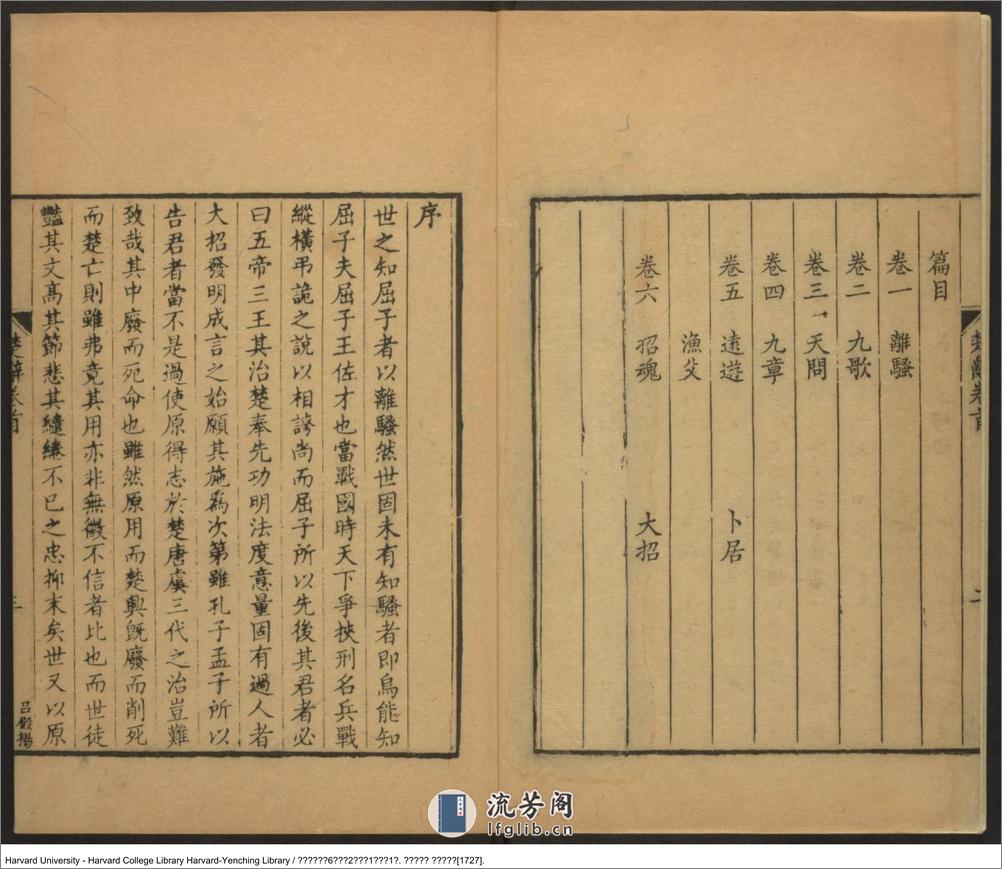 篇目
卷一 離騷
卷二 九歌
卷三 天問
卷四 九章
卷五 遠遊 卜居
漁父
卷六 招魂 大招
楚辭卷首
二
序
世之知屈子者以離騷然世固未有知騷者即烏能知
屈子夫屈子王佐才也當戰國時天下爭挾刑名兵戰
縱橫弔詭之說以相誇尚而屈子所以先後其君者必
曰五帝三王其治楚奉先功明法度意量固有過人者
大招發明成言之始願其施為次第雖孔子孟子所以
告君者當不是過使原得志於楚唐虞三代之治豈難
致哉其中廢而死命也雖然原用而楚興既廢而削死
而楚亡則雖弗竟其用亦非無徵不信者比也而世徒
豔其文高其節悲其繾綣不已之忠抑末矣世又以原
楚辭卷首
三
呂殿揚
流芳阁
lfglib.cn
Harvard University - Harvard College Library Harvard-Yenching Library / ??????6???2???1???1?. ????? ?????[1727].